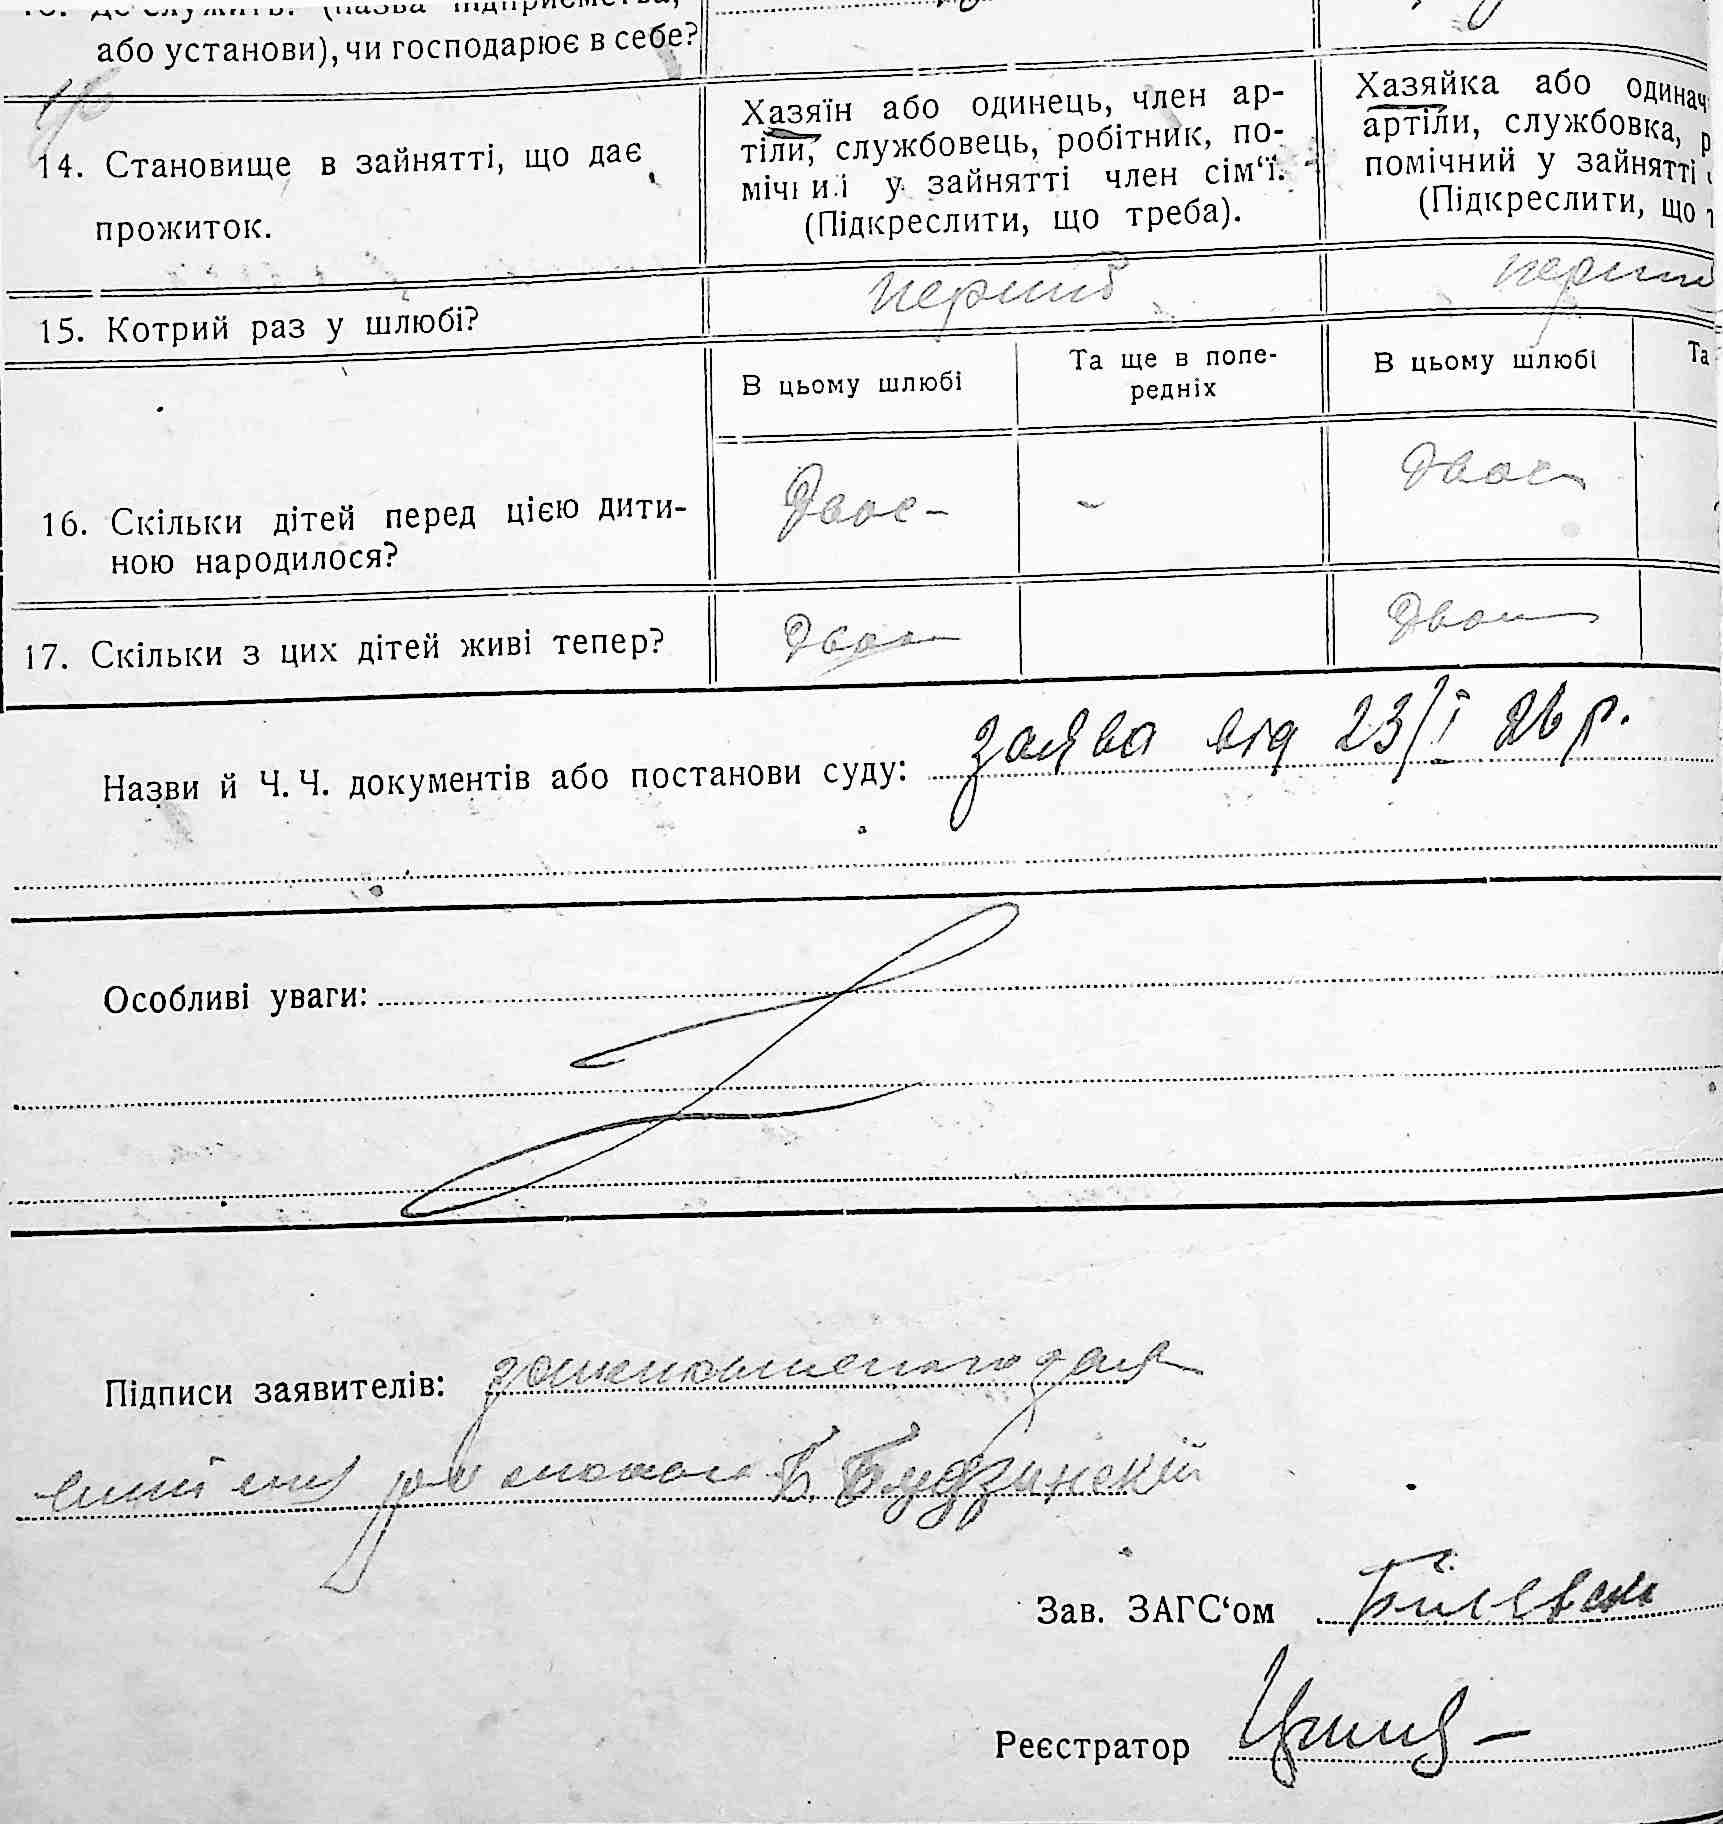 або установи), чи господарює в себе?
14. Становище в зайнятті, що дає
прожиток.
Хазяїн або одинець, член ар-
тіли, службовець, робітник, по-
мічний у зайнятті член сім‘ї.
(Підкреслити, що треба).
Хазяйка або одинач
артіли, службовка, р
помічний у зайнятті
(Підкреслити, що т
15. Котрий раз у шлюбі?
перший
перший
В цьому шлюбі
Та ще в попе-
редніх
В цьому шлюбі
Та
16. Скільки дітей перед цією дити-
ною народилося?
Двоє -
-
Двоє
17. Скільки з цих дітей живі тепер?
Двоє
Двоє
Назви й Ч. Ч. документів або постанови суду: заява від 23/І 26 р.
Особливі уваги:
Підписи заявителів:
Б. Будзинскій
Зав. ЗАГС‘ом
Реєстратор